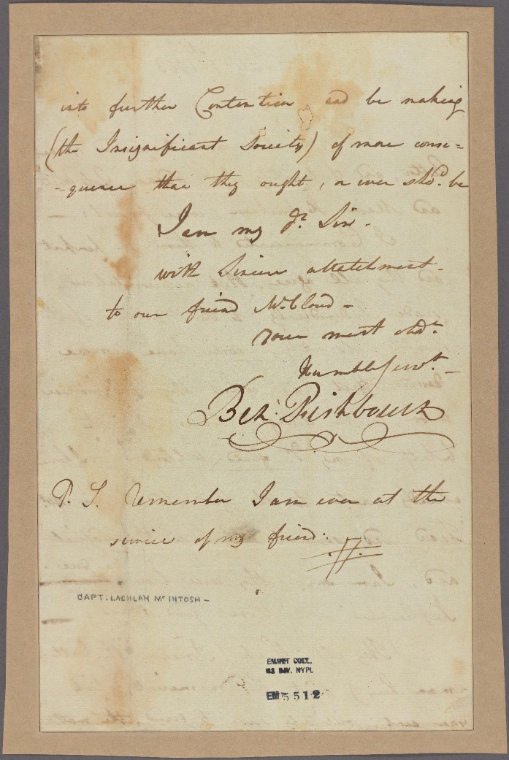 into further Contention and be making
(the Insignificant Society) of more conse=
-quence than they ought, or ever shd. be
I am my dr. Sir -
with Sincere attatchment -
to our friend McCloud -
Your most obdt.
Humble Servt. -
Ben: Fishbourn
P. S. remember I am ever at the
service of my friend:
CAPT. LACHLAN McINTOSH -
EMMET COLL.
MS DIV. NYPL
EM 5512